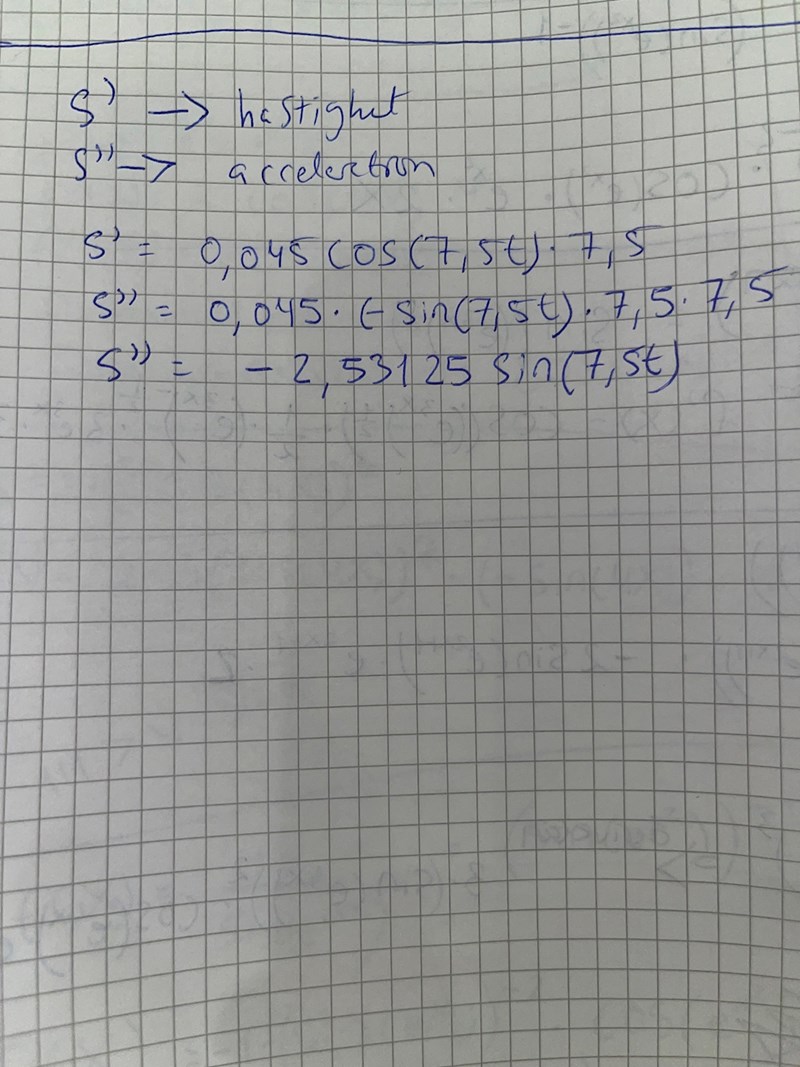 S' → hastighet
S'' → acceleration
S' = 0,045 cos(7,5t) · 7,5
S'' = 0,045 · (-sin(7,5t) · 7,5 · 7,5
S'' = -2,53125 sin(7,5t)